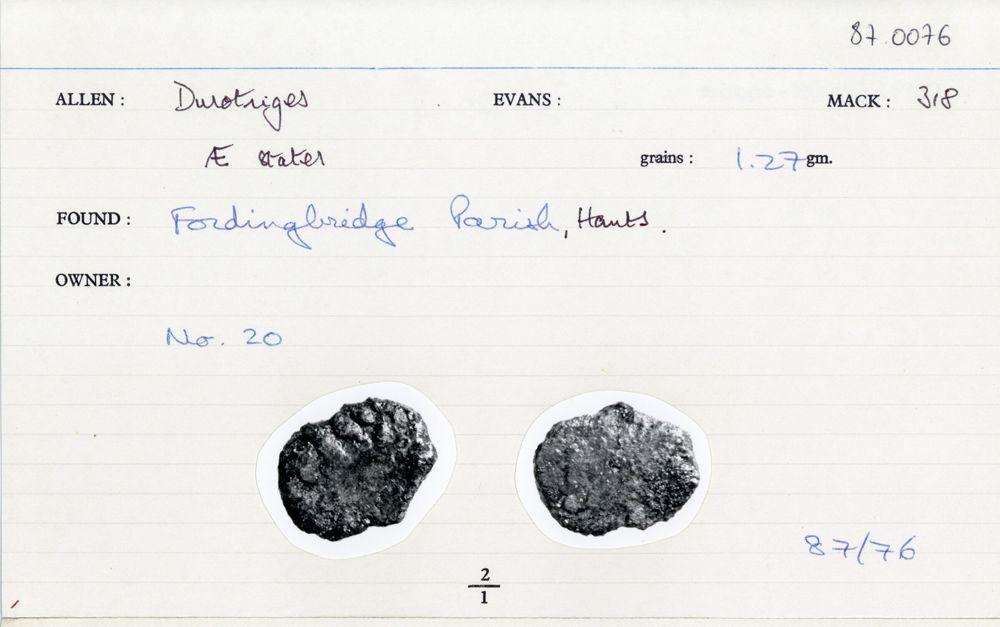 87.0076
ALLEN : Durotriges EVANS : MACK : 318
Æ stater grains : 1.27 gm.
FOUND : Fordingbridge Parish, Hants.
OWNER :
No. 20
87/76
2
1